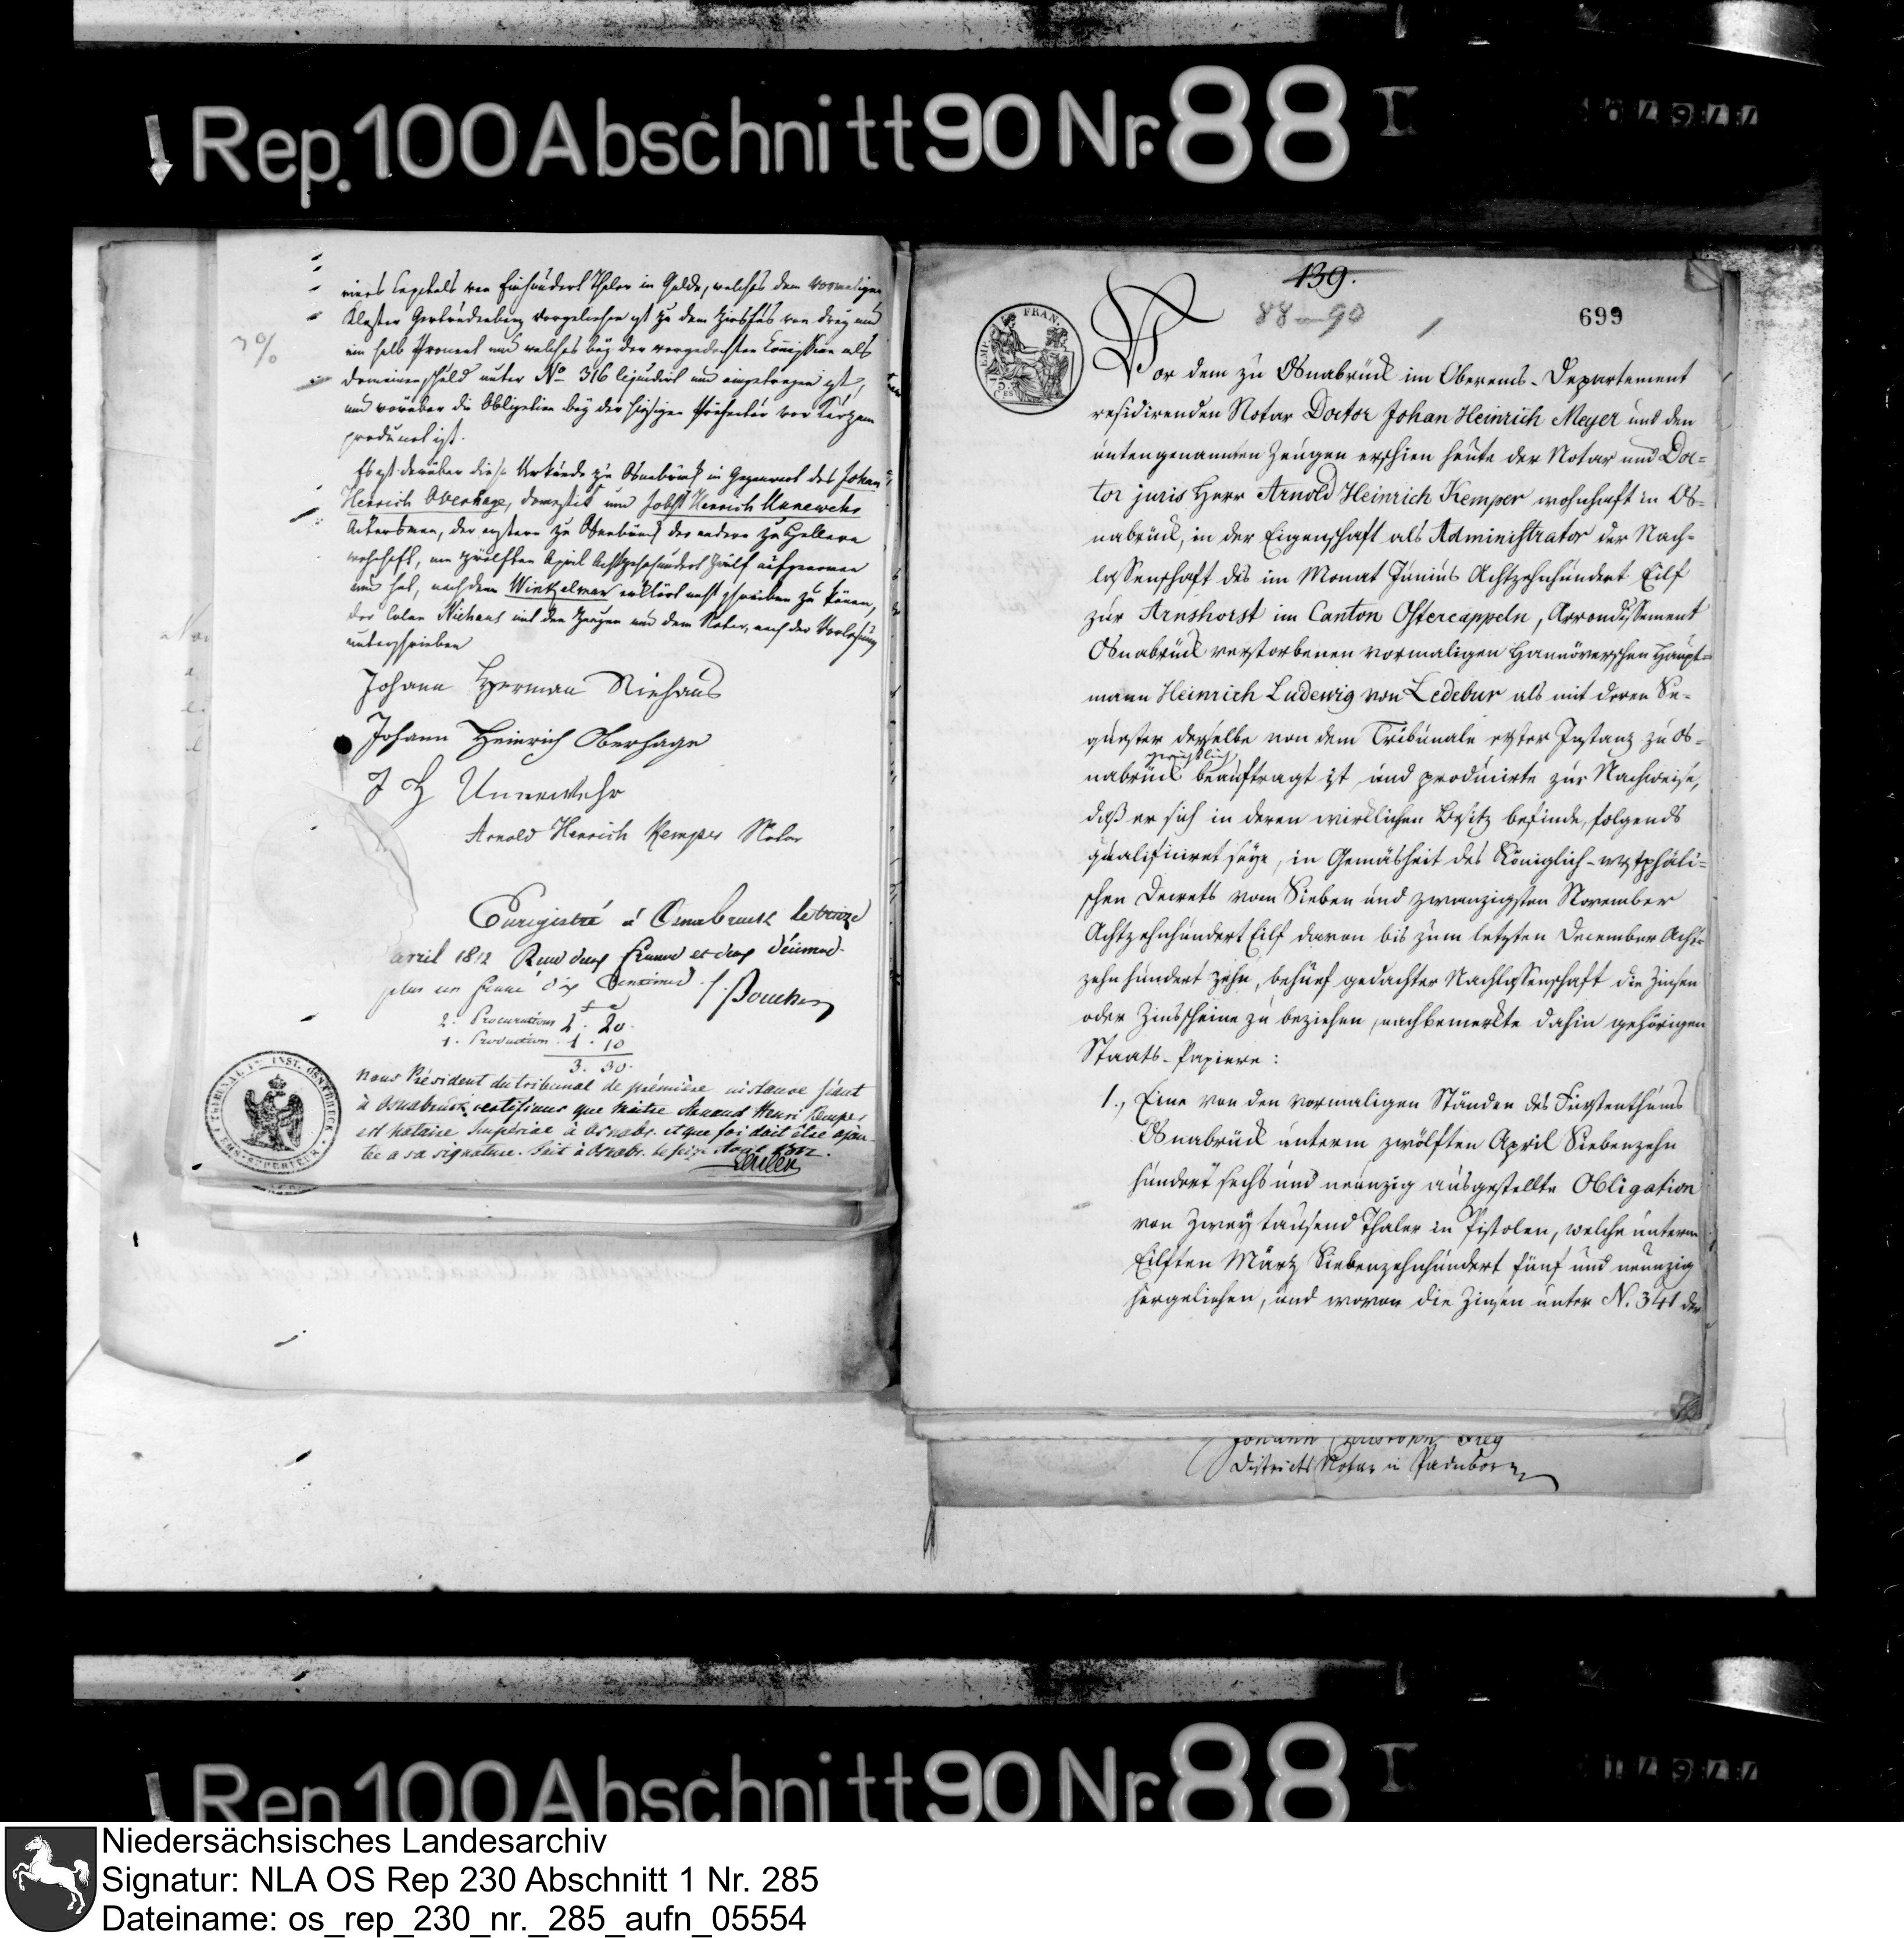 Rep. 100 Abschnitt 90 Nr. 88 I
eines Capitals von Einhundert Thaler in Golde, welches dem vormaligen
Kloster Gertrudenberg vorgeliehen ist zu dem Zinsfus von drey und
ein halb Procent und welches bey der vorgedachten Commission als
Domainenschuld unter No 316 liquidirt und eingetragen ist,
und worüber die Obligation bey der hiesigen Präfectur vor Kurzem
producirt ist.
Es ist darüber diese Urkunde zu Osnabrück in Gegenwart des Johan
Henrich Oberhage, Domestik und Jobst Henrich Unnewehr
Ackersman, der erstere zu Osnabrück der andere zu Hellern
wohnhaft, am zwölften April Achtzehnhundert Zwölf aufgenommen
und hat, nachdem Wintzelman erklärt nicht schreiben zu können,
der Colon Niehaus mit den Zeugen und dem Notar, nach der Vorlesung
unterschrieben
3%
Johann Herman Niehaus
Johann Heinrich Oberhage
J H Unnewehr
Arnold Henrich Kemper Notar
Enregistré à Osnabruck le treize
avril 1812 Reçu deux francs et deux décimes
plus un franc dix Centimes
2. Procurations 2. 20.
1. Production 1. 10
3. 30.
TRIBUNAL INST. OSNABRUCK
Nous Président du tribunal de première instance séant
à Osnabruck certifions que Maitre Arnaud Henri Kemper
est Notaire Imperial à Osnabr. et que foi doit être ajou-
tée a sa signature. Fait à Osnabr. le 1812.
139.
88-90
699
EMP. FRAN.
75.
Vor dem zu Osnabrück im Oberems-Departement
residirenden Notar Doctor Johan Heinrich Meyer und den
untengenannten Zeugen erschien heute der Notar und Doc-
tor juris Herr Arnold Heinrich Kemper wohnhaft in Os-
nabrück, in der Eigenschaft als Administrator der Nach-
lassenschaft des im Monat Junius Achtzehnhundert Eilf
zur Arnshorst im Canton Ostercappeln, Arrondissement
Osnabrück verstorbenen vormaligen Hannöverschen Haupt-
mann Heinrich Ludewig von Ledebur als mit deren Se-
quester derselbe von dem Tribunale erster Instanz zu Os-
gerichtlich
nabrück beauftragt ist, und producirte zur Nachweise,
daß er sich in deren wirklichen Besitz befinde, folgends
qualificiret seye, in Gemäsheit des Königlich-westphäli-
schen Decrets vom Sieben und zwanzigsten November
Achtzehnhundert Eilf davon bis zum letzten December Acht-
zehn hundert zehn, behuef gedachter Nachlassenschaft die Zinsen
oder Zinsscheine zu beziehen, nachbemerkte dahin gehörigen
Staats-Papiere:
1., Eine von den vormaligen Ständen des Fürstenthums
Osnabrück unterm zwölften April Siebenzehn
hundert sechs und neunzig ausgestellte Obligation
von Zwey tausend Thaler in Pistolen, welche unterm
Eilften März Siebenzehnhundert fünf und neunzig
hergeliehen, und wovon die Zinsen unter N. 341 der
Johann Christoph
Districts Notar in Paderborn
Rep. 100 Abschnitt 90 Nr. 88 I
Niedersächsisches Landesarchiv
Signatur: NLA OS Rep 230 Abschnitt 1 Nr. 285
Dateiname: os_rep_230_nr._285_aufn_05554